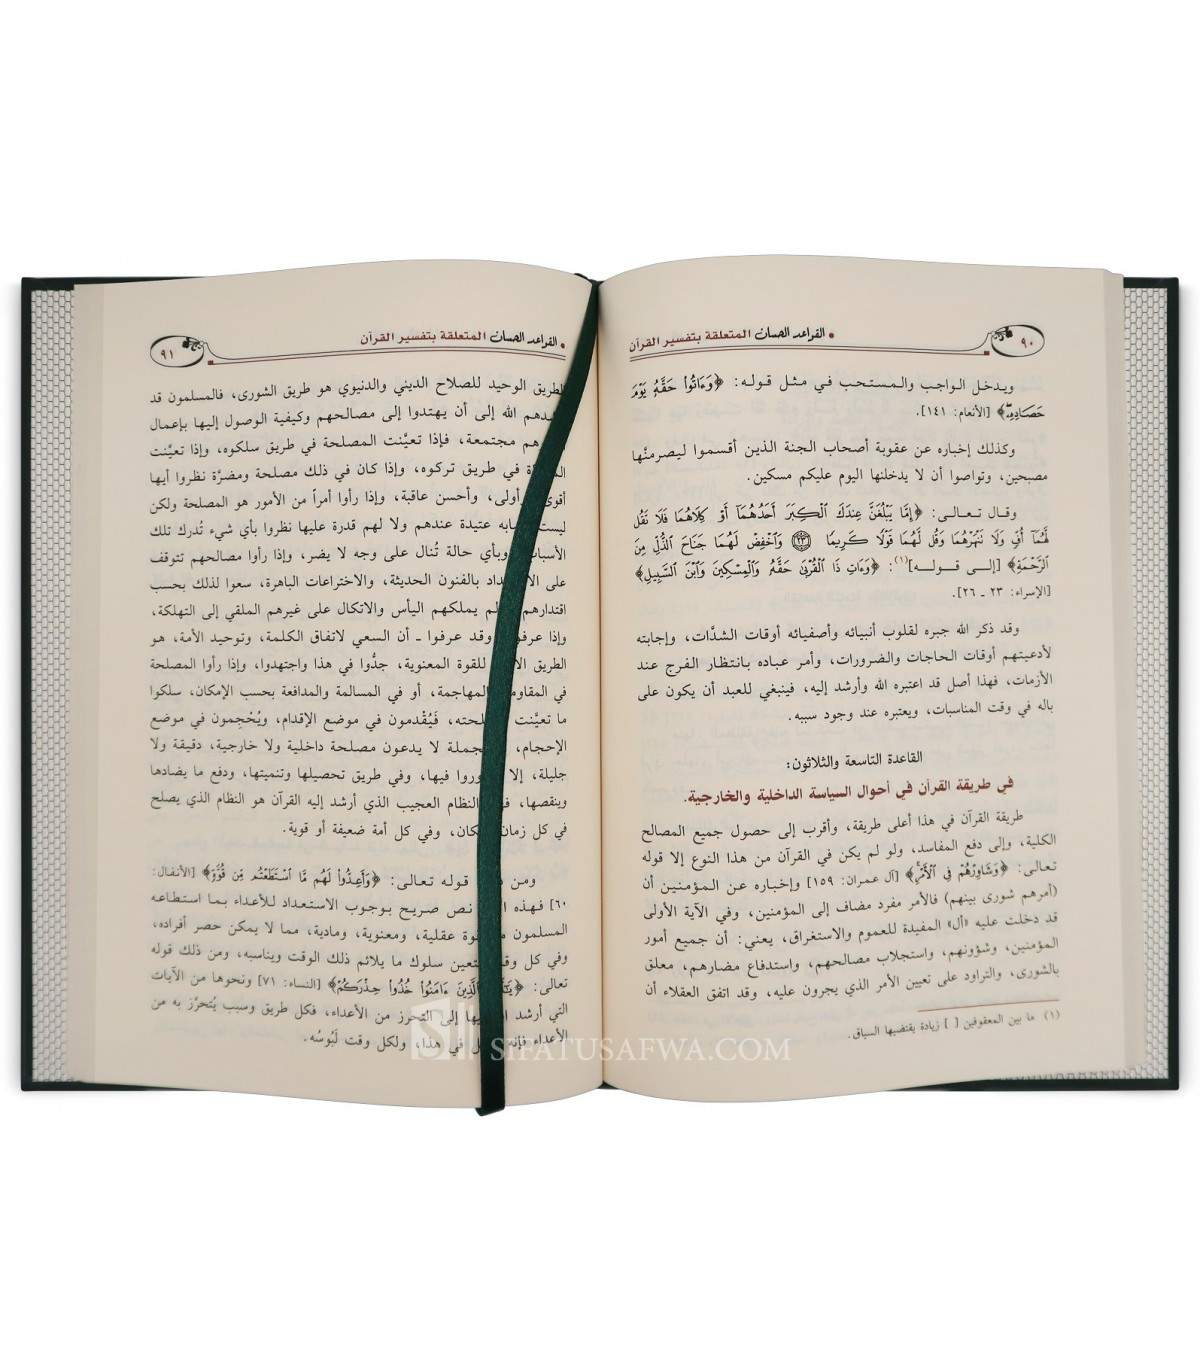 ٩٠
• القواعد الحسان المتعلقة بتفسير القرآن
ويدخل الواجب والمستحب في مثل قوله: ﴿وَءَاتُوا۟ حَقَّهُۥ يَوْمَ
حَصَادِهِۦ﴾ [الأنعام: ١٤١].
وكذلك إخباره عن عقوبة أصحاب الجنة الذين أقسموا ليصرمنَّها
مصبحين، وتواصوا أن لا يدخلنها اليوم عليكم مسكين.
وقال تعالى: ﴿إِمَّا يَبْلُغَنَّ عِندَكَ ٱلْكِبَرَ أَحَدُهُمَآ أَوْ كِلَاهُمَا فَلَا تَقُل
لَّهُمَآ أُفٍّ وَلَا تَنْهَرْهُمَا وَقُل لَّهُمَا قَوْلًا كَرِيمًا ٢٣ وَٱخْفِضْ لَهُمَا جَنَاحَ ٱلذُّلِّ مِنَ
ٱلرَّحْمَةِ﴾ [إلى قوله](١): ﴿وَءَاتِ ذَا ٱلْقُرْبَىٰ حَقَّهُۥ وَٱلْمِسْكِينَ وَٱبْنَ ٱلسَّبِيلِ﴾
[الإسراء: ٢٣ ـ ٢٦].
وقد ذكر الله جبره لقلوب أنبيائه وأصفيائه أوقات الشدَّات، وإجابته
لأدعيتهم أوقات الحاجات والضرورات، وأمر عباده بانتظار الفرج عند
الأزمات، فهذا أصل قد اعتبره الله وأرشد إليه، فينبغي للعبد أن يكون على
باله في وقت المناسبات، ويعتبره عند وجود سببه.
القاعدة التاسعة والثلاثون:
في طريقة القرآن في أحوال السياسة الداخلية والخارجية.
طريقة القرآن في هذا أعلى طريقة، وأقرب إلى حصول جميع المصالح
الكلية، وإلى دفع المفاسد، ولو لم يكن في القرآن من هذا النوع إلا قوله
تعالى: ﴿وَشَاوِرْهُمْ فِى ٱلْأَمْرِ﴾ [آل عمران: ١٥٩] وإخباره عن المؤمنين أن
(أمرهم شورى بينهم) فالأمر مفرد مضاف إلى المؤمنين، وفي الآية الأولى
قد دخلت عليه «أل» المفيدة للعموم والاستغراق، يعني: أن جميع أمور
المؤمنين، وشؤونهم، واستجلاب مصالحهم، واستدفاع مضارهم، معلق
بالشورى، والتراود على تعيين الأمر الذي يجرون عليه، وقد اتفق العقلاء أن
(١) ما بين المعقوفين [ ] زيادة يقتضيها السياق.
٩١
• القواعد الحسان المتعلقة بتفسير القرآن
الطريق الوحيد للصلاح الديني والدنيوي هو طريق الشورى، فالمسلمون قد
الله إلى أن يهتدوا إلى مصالحهم وكيفية الوصول إليها بإعمال
مجتمعة، فإذا تعيَّنت المصلحة في طريق سلكوه، وإذا تعيَّنت
في طريق تركوه، وإذا كان في ذلك مصلحة ومضرَّة نظروا أيها
أقوى أولى، وأحسن عاقبة، وإذا رأوا أمراً من الأمور هو المصلحة ولكن
ليست عتيدة عندهم ولا لهم قدرة عليها نظروا بأي شيء تُدرك تلك
الأسباب وبأي حالة تُنال على وجه لا يضر، وإذا رأوا مصالحهم تتوقف
على بالفنون الحديثة، والاختراعات الباهرة، سعوا لذلك بحسب
اقتدارهم يملكهم اليأس والاتكال على غيرهم الملقي إلى التهلكة،
وإذا عرفوا وقد عرفوا ـ أن السعي لاتفاق الكلمة، وتوحيد الأمة، هو
الطريق للقوة المعنوية، جدُّوا في هذا واجتهدوا، وإذا رأوا المصلحة
في المقاومة المهاجمة، أو في المسالمة والمدافعة بحسب الإمكان، سلكوا
ما تعيَّنت فَيُقْدمون في موضع الإقدام، ويُحْجِمون في موضع
الإحجام، لا يدعون مصلحة داخلية ولا خارجية، دقيقة ولا
جليلة، إلا فيها، وفي طريق تحصيلها وتنميتها، ودفع ما يضادها
وينقصها، النظام العجيب الذي أرشد إليه القرآن هو النظام الذي يصلح
في كل زمان وفي كل أمة ضعيفة أو قوية.
ومن قوله تعالى: ﴿وَأَعِدُّوا۟ لَهُم مَّا ٱسْتَطَعْتُم مِّن قُوَّةٍ﴾ [الأنفال:
٦٠] فهذه نص صريح بوجوب الاستعداد للأعداء بما استطاعه
المسلمون عقلية، ومعنوية، ومادية، مما لا يمكن حصر أفراده،
وفي كل سلوك ما يلائم ذلك الوقت ويناسبه، ومن ذلك قوله
تعالى: ﴿ ءَامَنُوا۟ خُذُوا۟ حِذْرَكُمْ﴾ [النساء: ٧١] ونحوها من الآيات
التي أرشد إلى التحرز من الأعداء، فكل طريق وسبب يُتحرَّز به من
الأعداء فإنه في هذا، ولكل وقت لَبُوسُه.
SIFATUSAFWA.COM